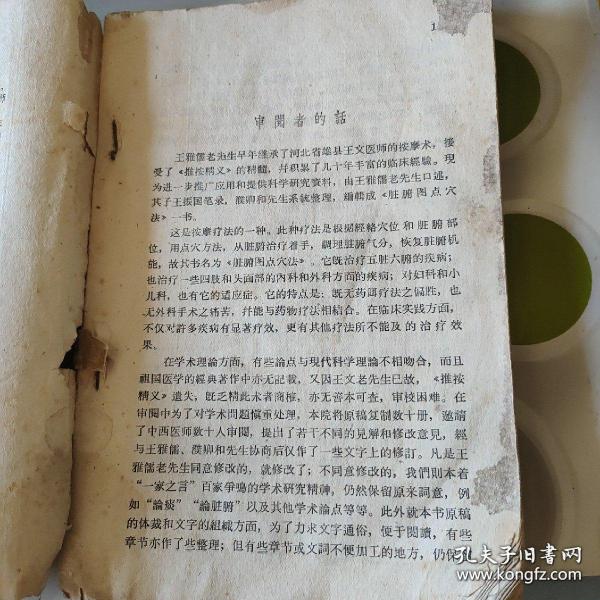 1
审閱者的話
王雅儒老先生早年继承了河北省雄县王文医师的按摩术，接
受了《推按精义》的精髓，幷积累了几十年丰富的临床經驗。現
为进一步推广应用和提供科学研究資料，由王雅儒老先生口述，
其子王振国笔录，濮卿和先生系統整理，編輯成《脏腑图点穴
法》一书。
这是按摩疗法的一种。此种疗法是根据經絡穴位和脏腑部
位，用点穴方法，从脏腑治疗着手，調理脏腑气分，恢复脏腑机
能，故其书名为《脏腑图点穴法》。它既治疗五脏六腑的疾病；
也治疗一些四肢和头面部的內科和外科方面的疾病；对妇科和小
儿科，也有它的适应症。它的特点是：既无药餌疗法之偏胜，也
无外科手术之痛苦，幷能与药物疗法相結合。在临床实践方面，
不仅对許多疾病有显著疗效，更有其他疗法所不能及的治疗效
果。
在学术理論方面，有些論点与現代科学理論不相吻合，而且
祖国医学的經典著作中亦无記載，又因王文老先生已故，《推按
精义》遺失，既乏精此术者商榷，亦无善本可查，审校困难。在
审閱中为了对学术問題愼重处理，本院将原稿复制数十册，邀請
了中西医师数十人审閱，提出了若干不同的見解和修改意見，經
与王雅儒、濮卿和先生协商后仅作了一些文字上的修訂。凡是王
雅儒老先生同意修改的，就修改了；不同意修改的，我們則本着
“一家之言”百家爭鳴的学术研究精神，仍然保留原来詞意，例
如“論痰”“論脏腑”以及其他学术論点等等。此外就本书原稿
的体裁和文字的組織方面，为了力求文字通俗，便于閱讀，有些
章节亦作了些整理；但有些章节或文詞不便加工的地方，仍保
孔夫子旧书网
www.kongfz.com